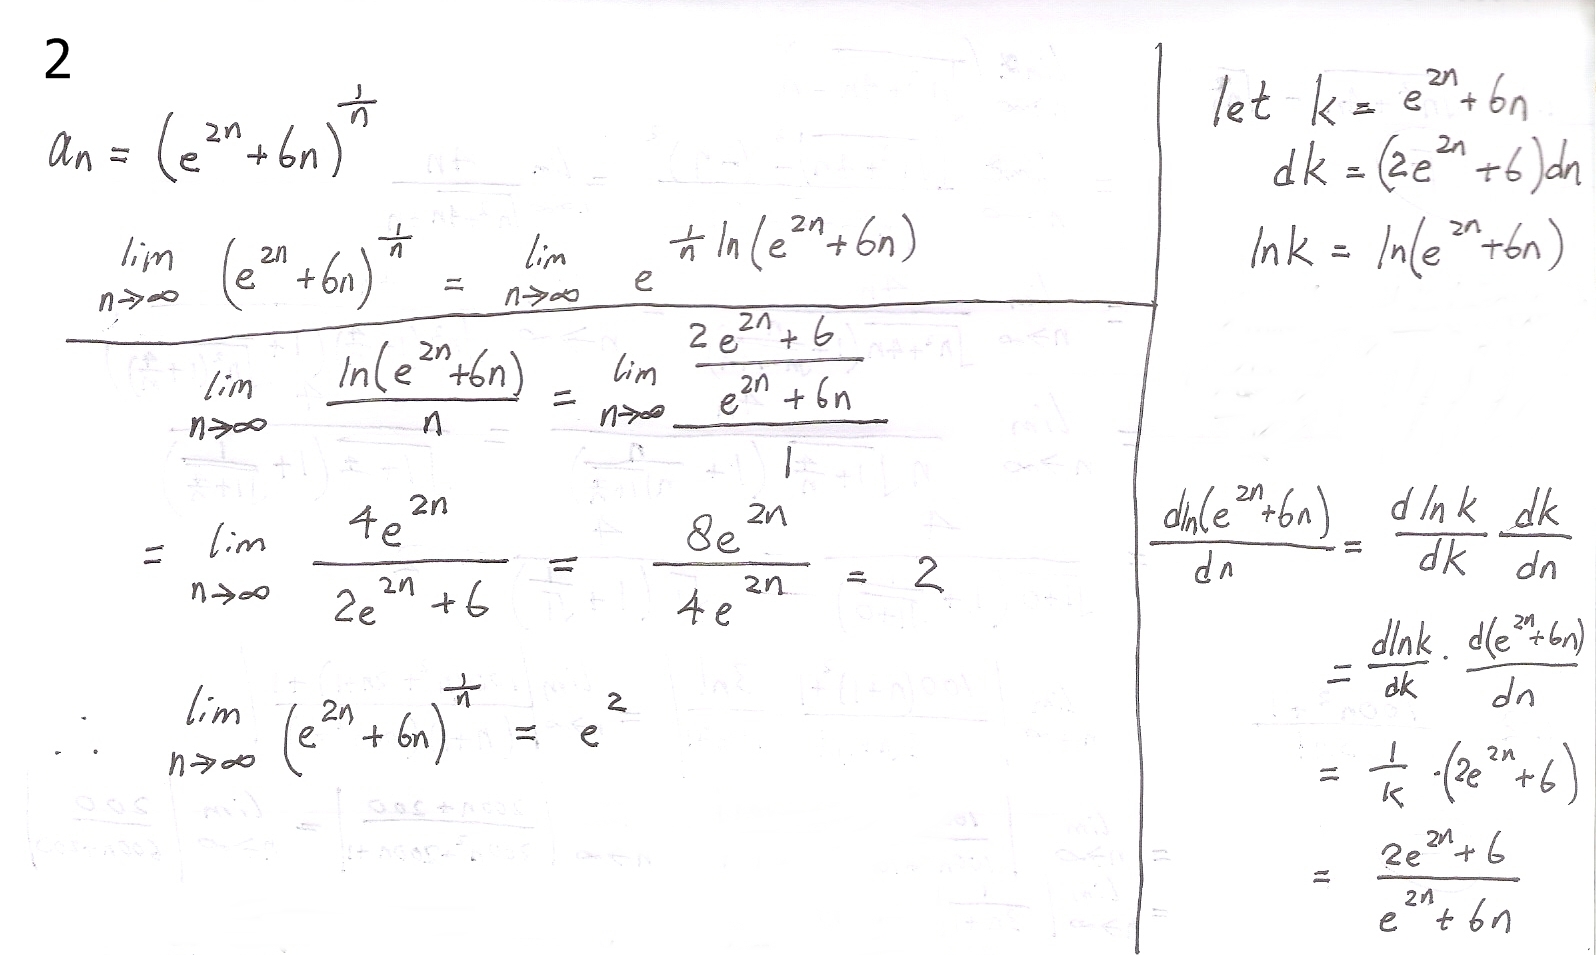 2
aₙ = (e^{2n} + 6n)^{1/n}
lim_{n→∞} (e^{2n} + 6n)^{1/n} = lim_{n→∞} e^{1/n ln(e^{2n} + 6n)}
lim_{n→∞} ln(e^{2n} + 6n) / n = lim_{n→∞} ((2e^{2n} + 6) / (e^{2n} + 6n)) / 1
= lim_{n→∞} 4e^{2n} / (2e^{2n} + 6) = 8e^{2n} / 4e^{2n} = 2
∴ lim_{n→∞} (e^{2n} + 6n)^{1/n} = e^2
let k = e^{2n} + 6n
dk = (2e^{2n} + 6)dn
ln k = ln(e^{2n} + 6n)
dln(e^{2n} + 6n) / dn = d ln k / dk dk / dn
= dlnk / dk · d(e^{2n} + 6n) / dn
= 1/k · (2e^{2n} + 6)
= (2e^{2n} + 6) / (e^{2n} + 6n)